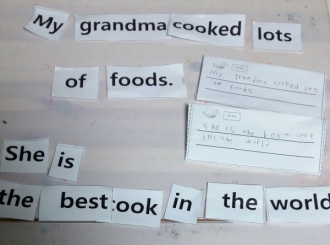 My grandma cooked lots
of foods.
My grandma cooked lots
of foods
She is the best cook
in the world
She is
the best cook in the world